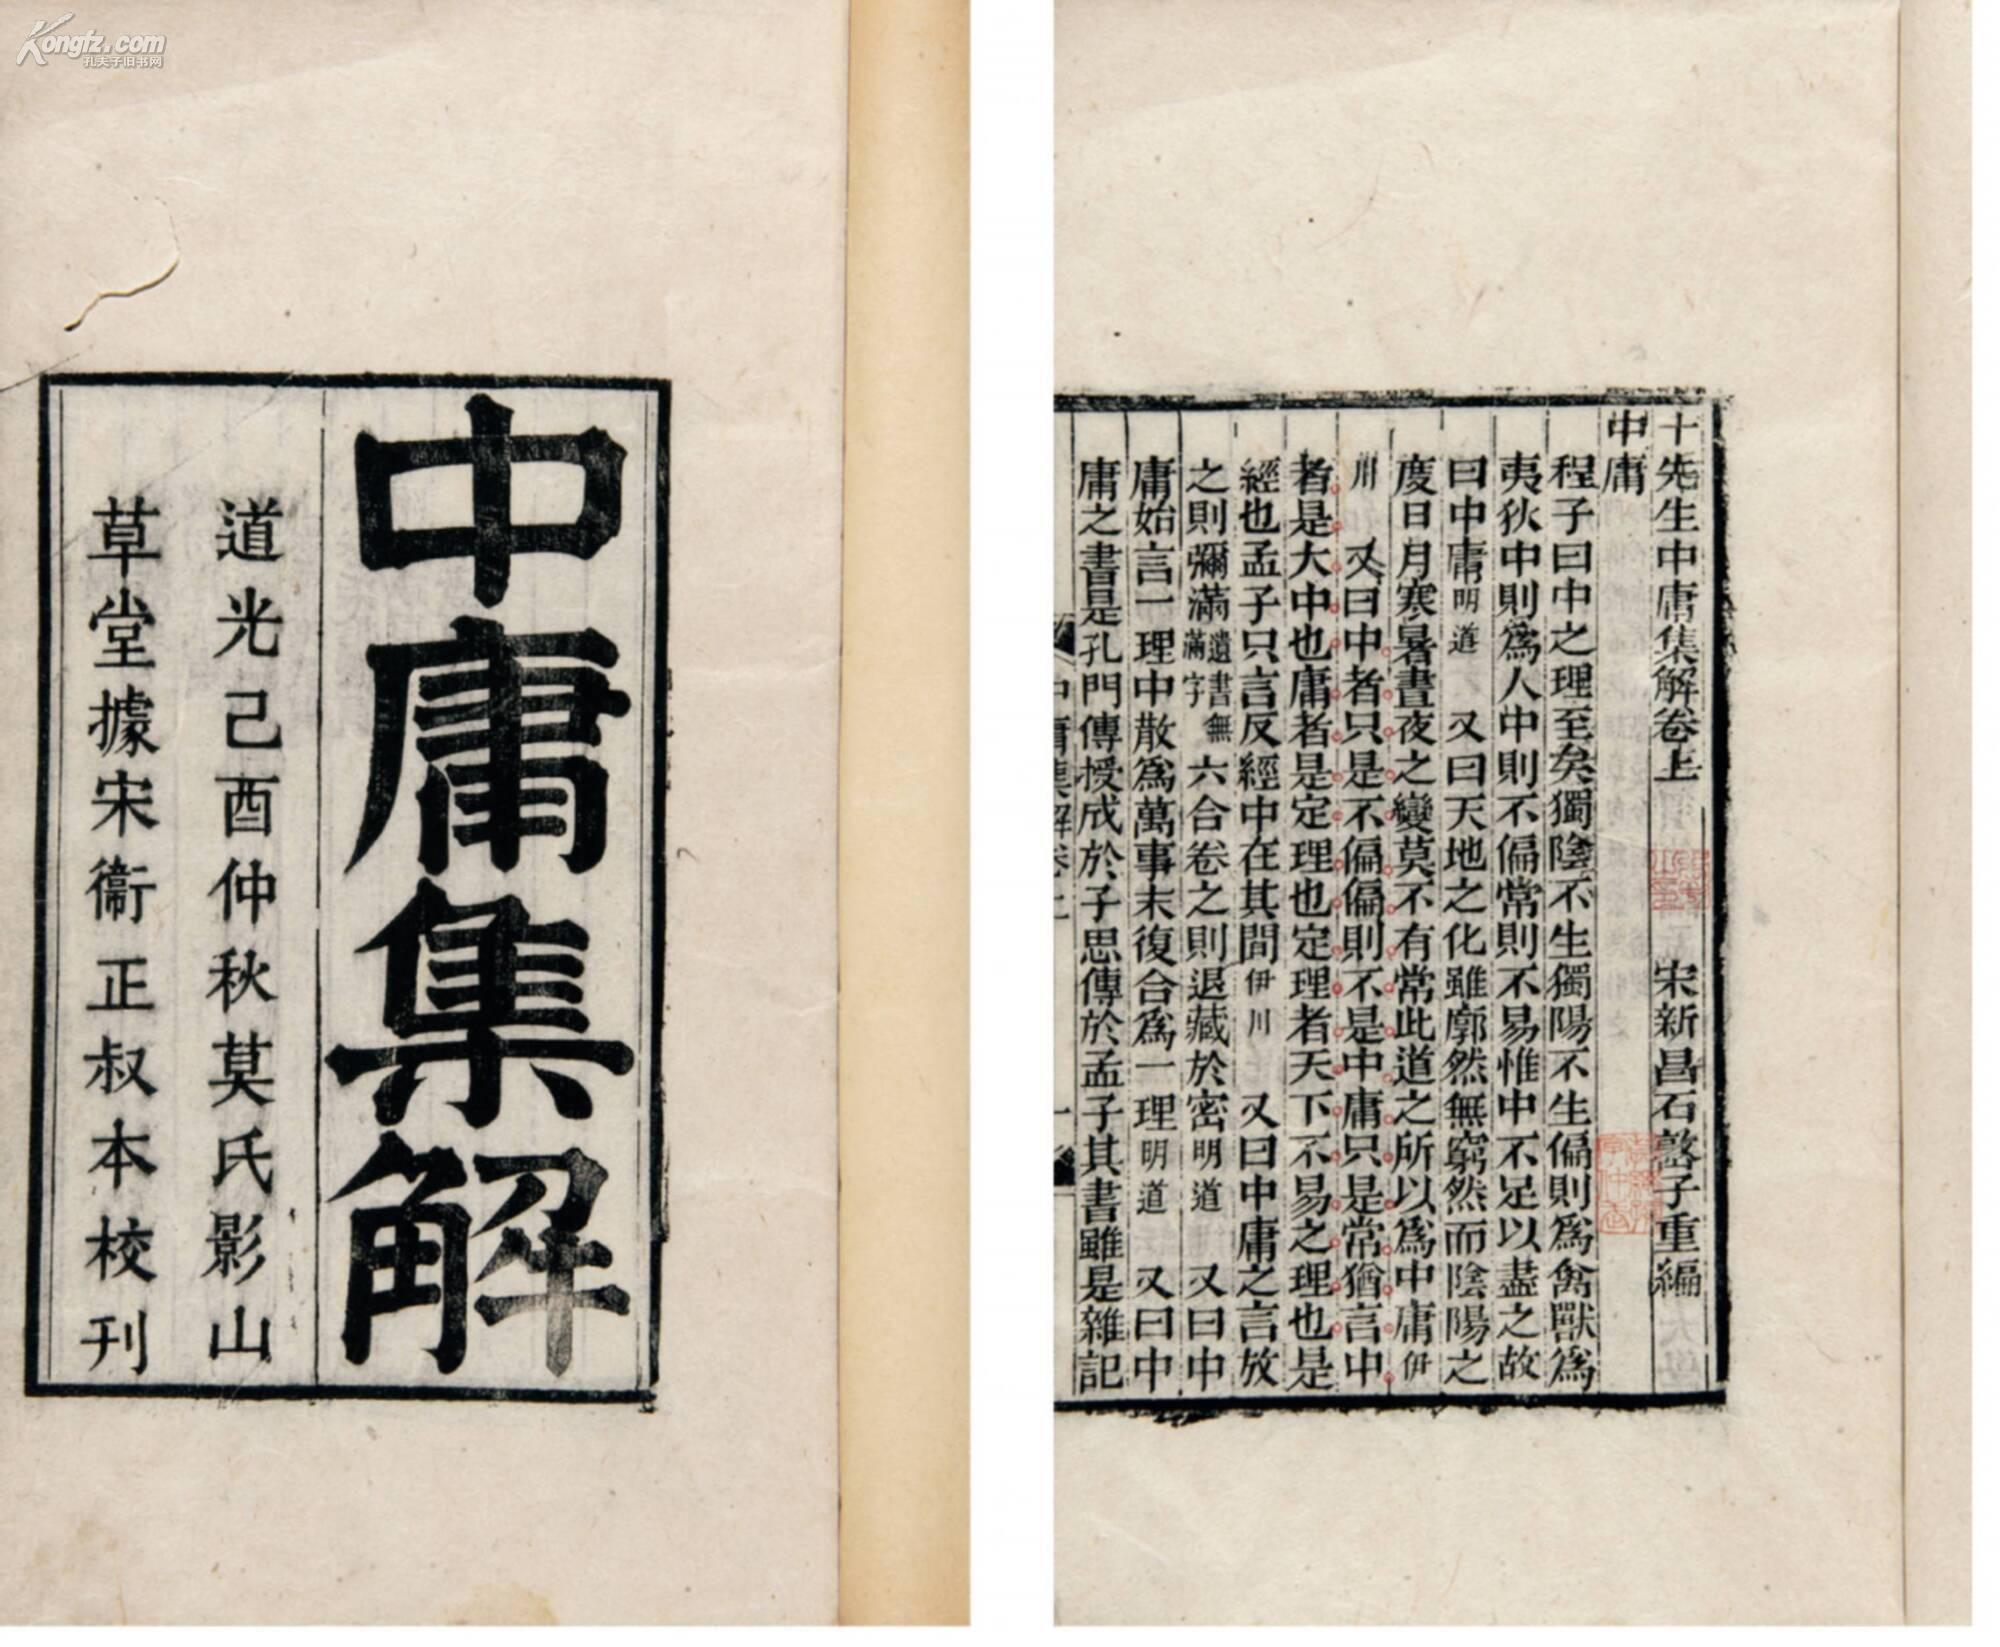 Kongfz.com
孔夫子旧书网
中庸集解
道光己酉仲秋莫氏影山
草堂據宋衞正叔本校刊
十先生中庸集解卷上 宋新昌石𡼖子重編
中庸
程子曰中之理至矣獨陰不生獨陽不生偏則爲禽獸爲
夷狄中則爲人中則不偏常則不易惟中不足以盡之故
曰中庸明道 又曰天地之化雖廓然無窮然而陰陽之
度日月寒暑晝夜之變莫不有常此道之所以爲中庸伊
川 又曰中者只是不偏偏則不是中庸只是常猶言中
者是大中也庸者是定理也定理者天下不易之理也是
經也孟子只言反經中在其間伊川 又曰中庸之言放
之則彌滿遺書無滿字六合卷之則退藏於密明道 又曰中
庸始言一理中散爲萬事末復合爲一理明道 又曰中
庸之書是孔門傳授成於子思傳於孟子其書雖是雜記